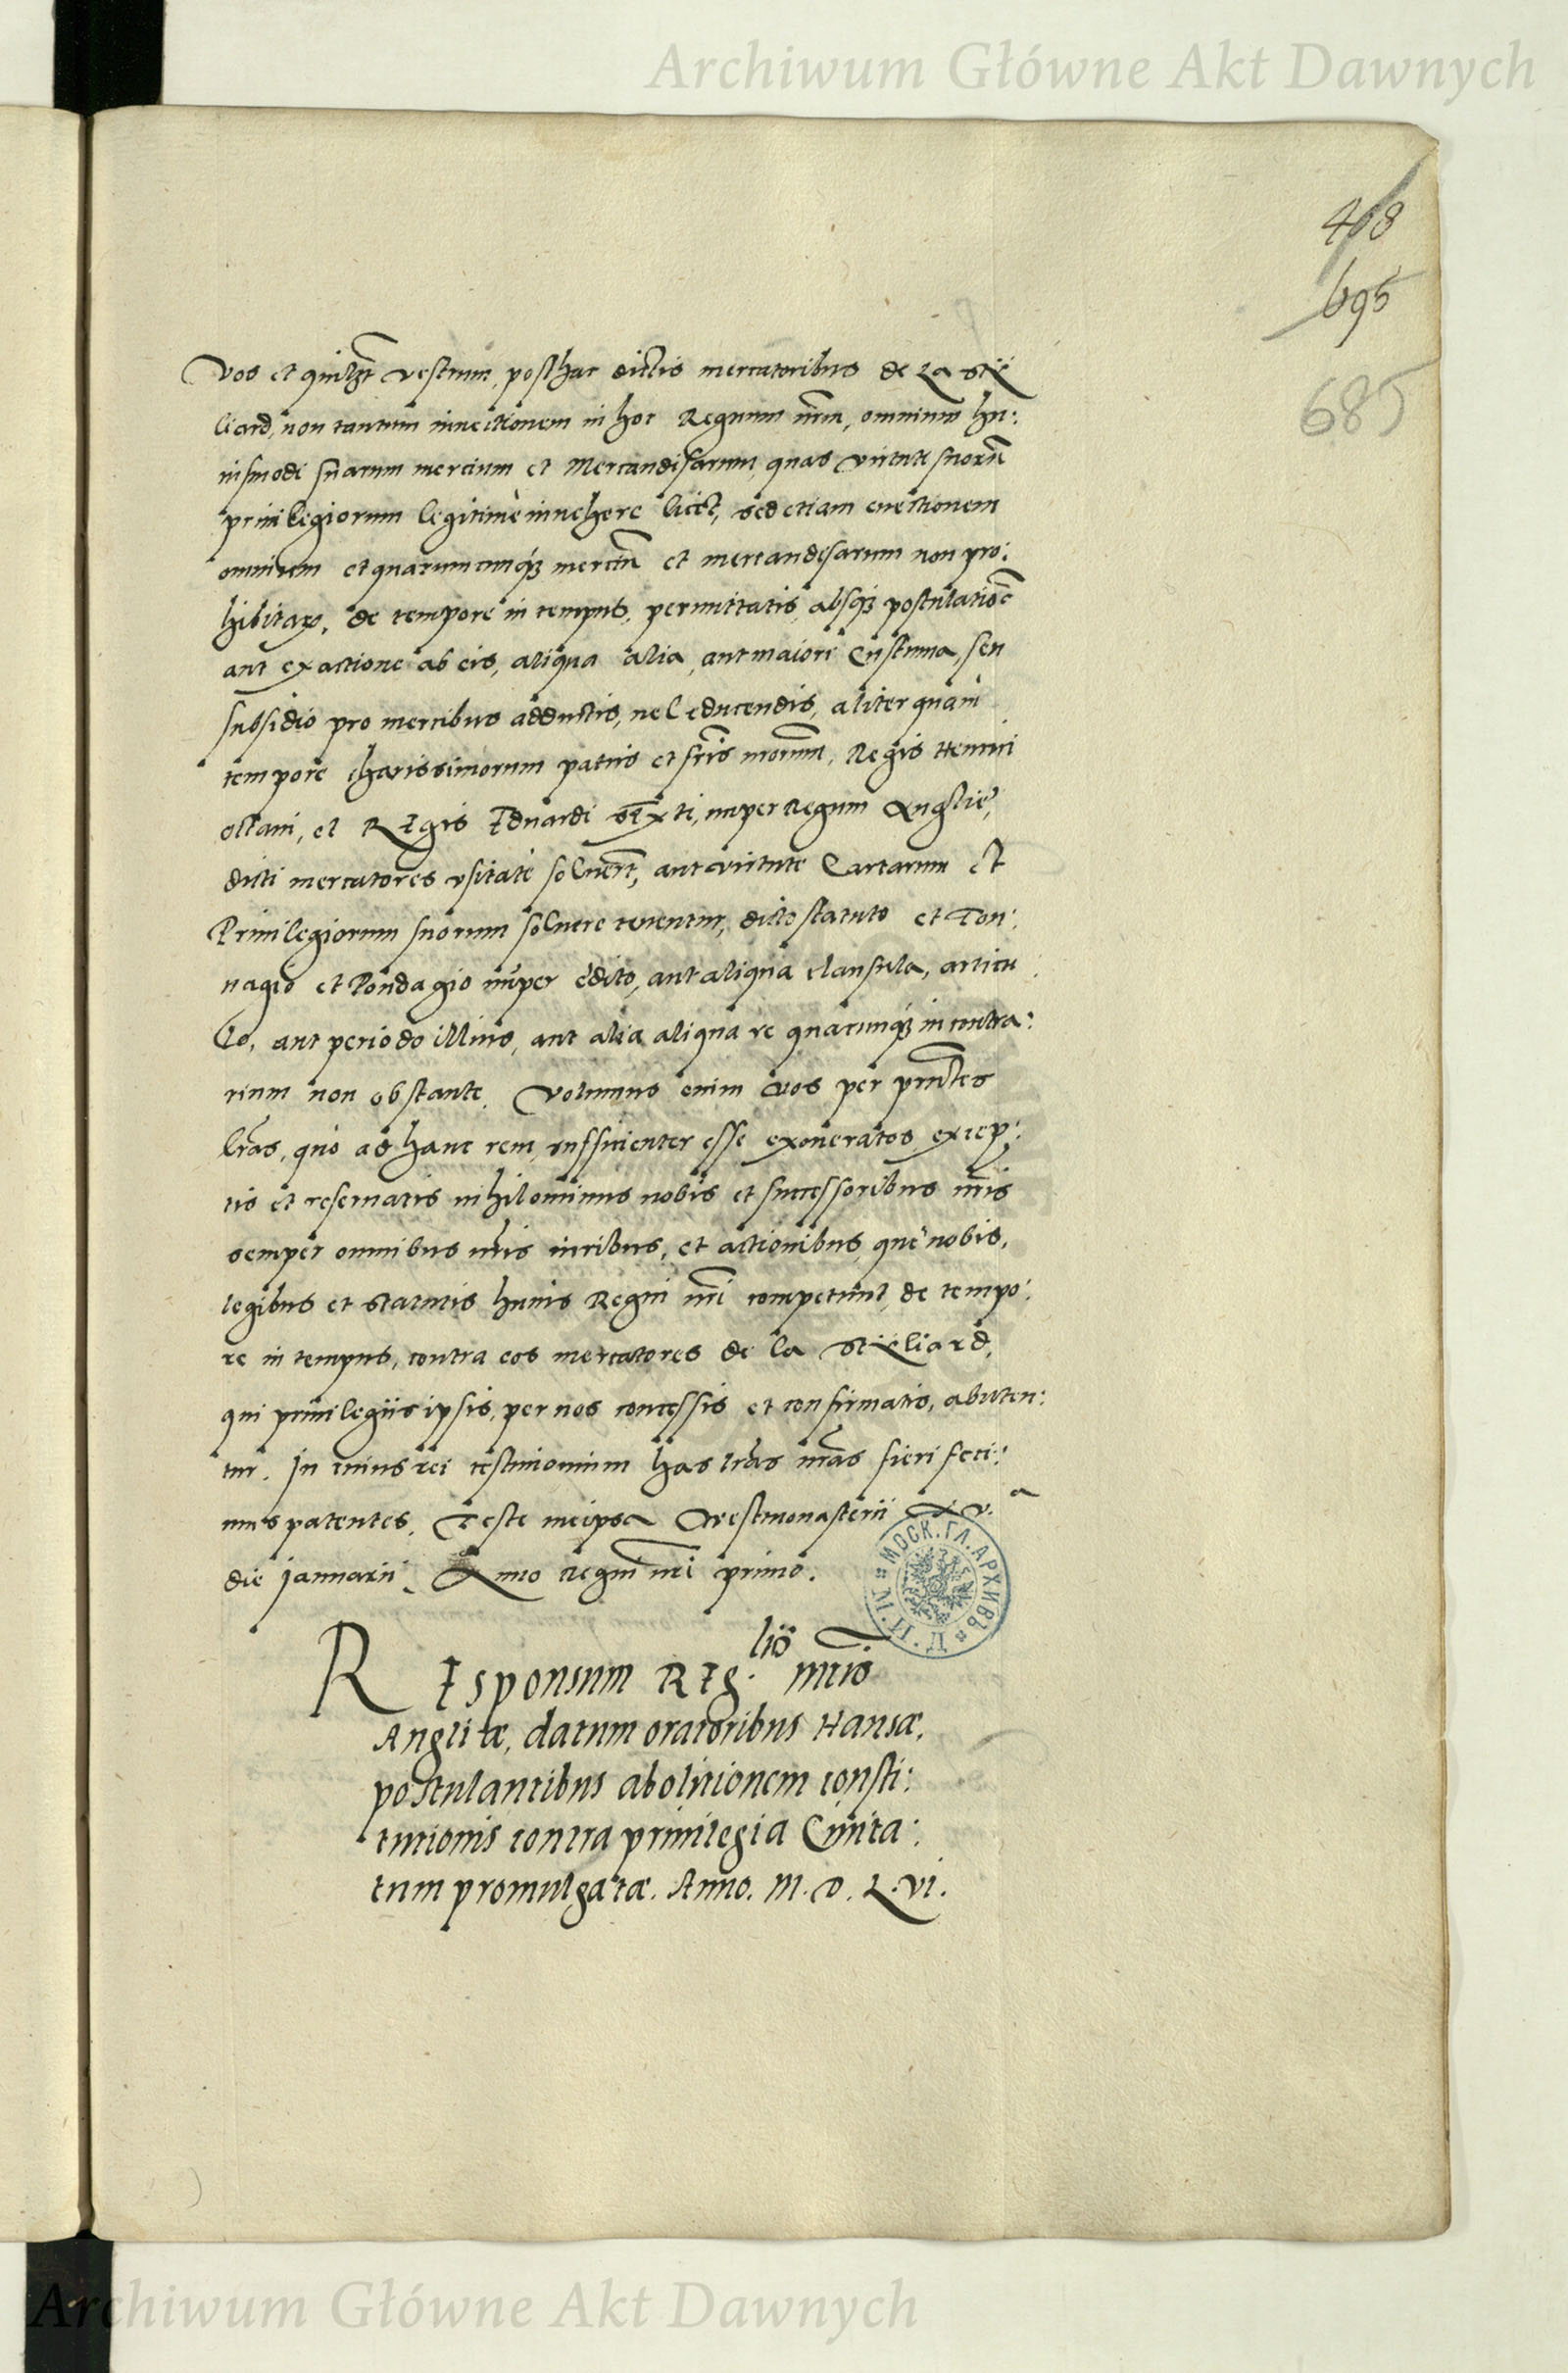 Archiwum Główne Akt Dawnych
408
695
685
Vos et quilibet vestrum, posthac dictis mercatoribus de La Stil
liard, non tantum invectionem in hoc Regnum nrm, omnium hu:
iusmodi suarum mercium et Mercandisarum, quas virtute suorum
privilegiorum legitimè invehere licet, sed etiam evectionem
omnium et quarumcumq3 merciu et mercandesarum non pro:
hibitar, de tempore in tempus, permittatis, absq3 postulatione
aut exactione ab eis, aliqua alia, aut maiori Custuma, seu
subsidio pro mercibus adductis, vel educendis, aliter quam
tempore charissimorum patris et fris nrorum, Regis Henrici
octavi, et REgis Eduardi SExti, nuper Regum Anglie,
dicti mercatores vsitate soluert, aut virtute Cartarum et
Privilegiorum suorum soluere tenentur, dicto statuto et Ton:
nagio et Pondagio nuper edito, aut aliqua clausula, articu
lo, aut periodo illius, aut alia aliqua re quacunq3 in contra:
rium non obstante. Volumus enim vos per pntes
lras, quo ad hanc rem, sufficienter esse exoneratos, excep:
tis et reservatis nihilominus nobis et successoribus nris
semper omnibus nris iuribus, et actionibus, que nobis,
legibus et statutis huius Regni nri competunt, de tempo:
re in tempus, contra eos mercatores de la Stilliard,
qui privilegiis ipsis, per nos concessis et confirmatis, abuten:
tur. In cuius rei testimonium has lras nras fieri feci:
mus patentes, Teste meipsa Westmonasterii Xv.a
die Januarii, Anno Regni nri primo.
REsponsum REg.lio nrio
Angliæ, datum oratoribus Hansæ,
postulantibus abolitionem consti:
tutionis contra privilegia Civita:
tum promulgatæ. Anno. M. D. L. vi.
МОСК. ГЛ. АРХИВЪ
Archiwum Główne Akt Dawnych